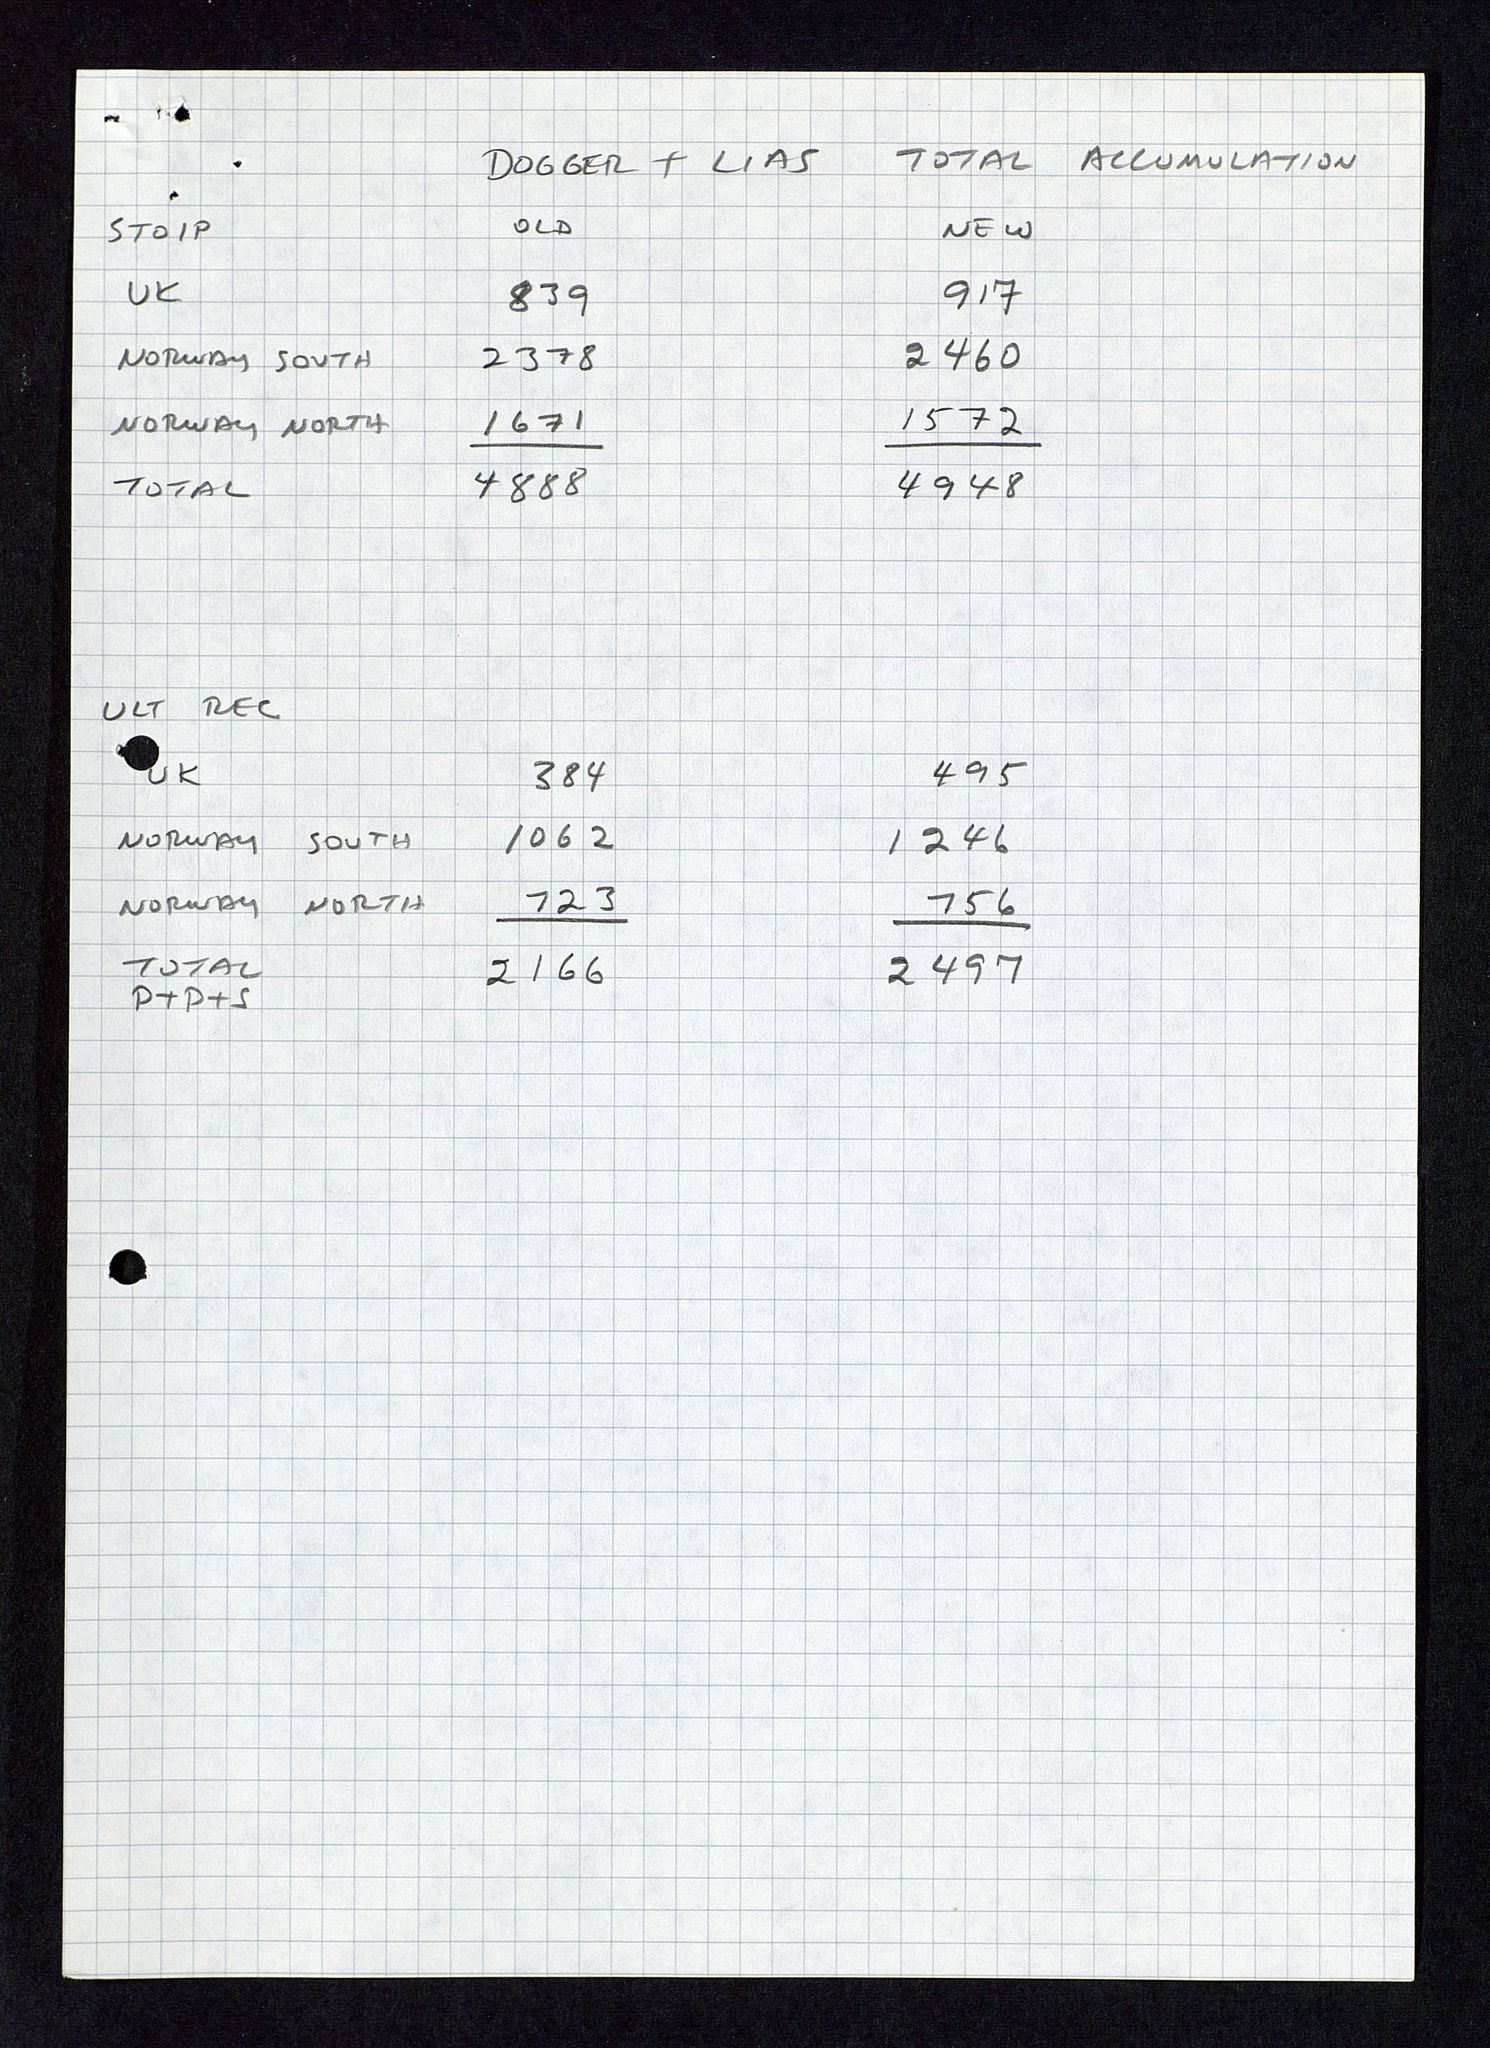 DOGGER + LIAS TOTAL ACCUMULATION
STOIP OLD NEW
UK 839 917
NORWAY SOUTH 2378 2460
NORWAY NORTH 1671 1572
TOTAL 4888 4948
ULT REC
UK 384 495
NORWAY SOUTH 1062 1246
NORWAY NORTH 723 756
TOTAL 2166 2497
P+P+S